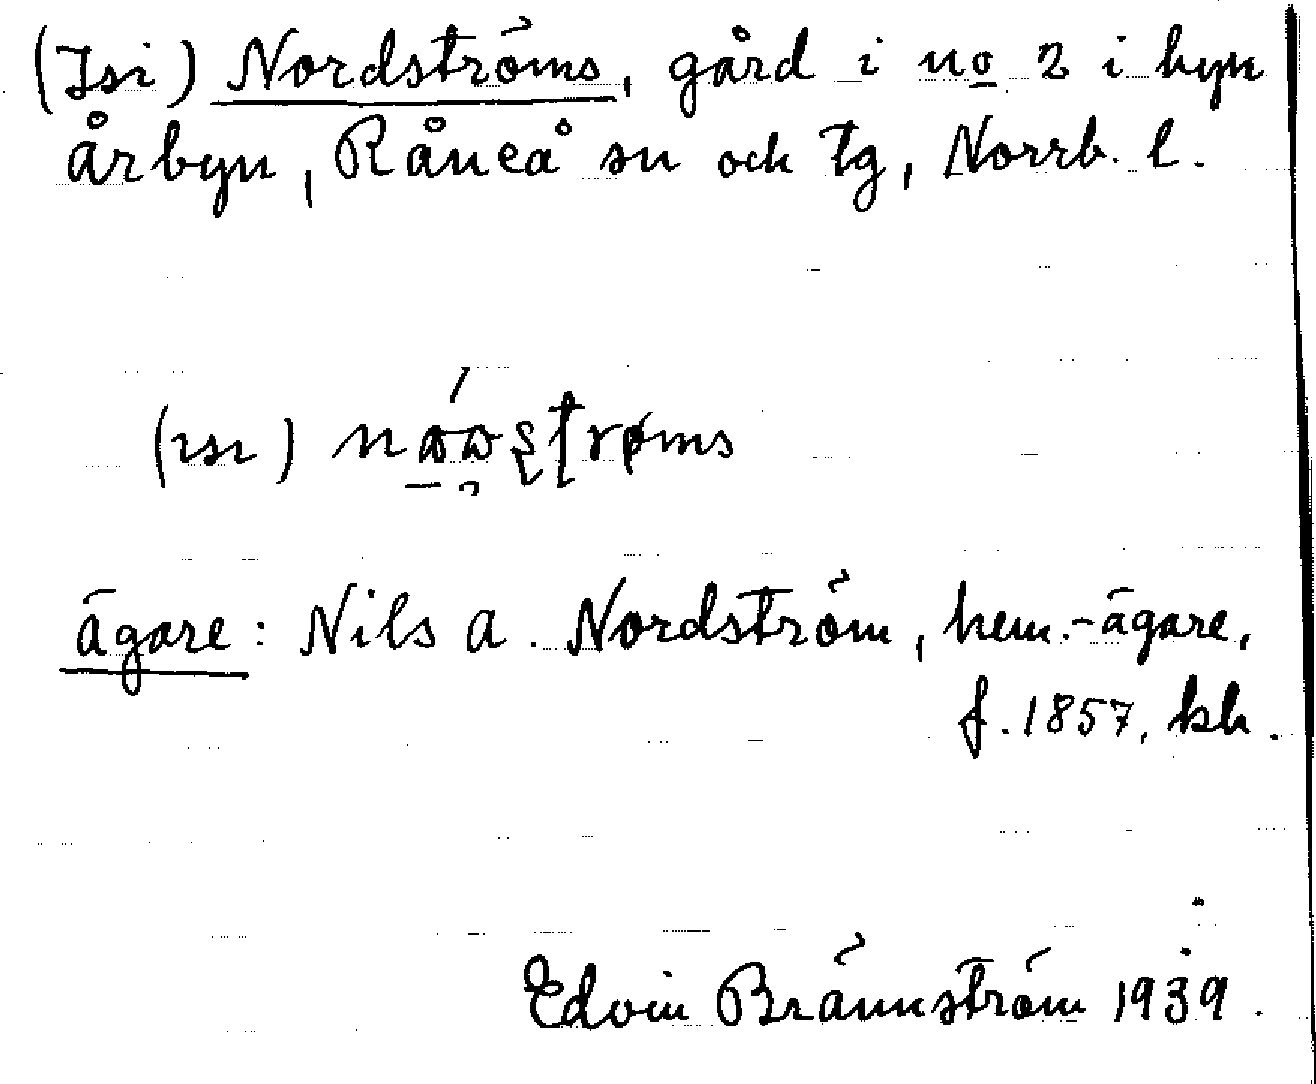 (Isi) Nordströms, gård i no 2 i byn
Årbyn, Råneå sn och tg, Norrb. l.
(ısı)
ägare: Nils A. Nordström, hem.-ägare,
f. 1857, kb.
Edvin Brännström 1939.